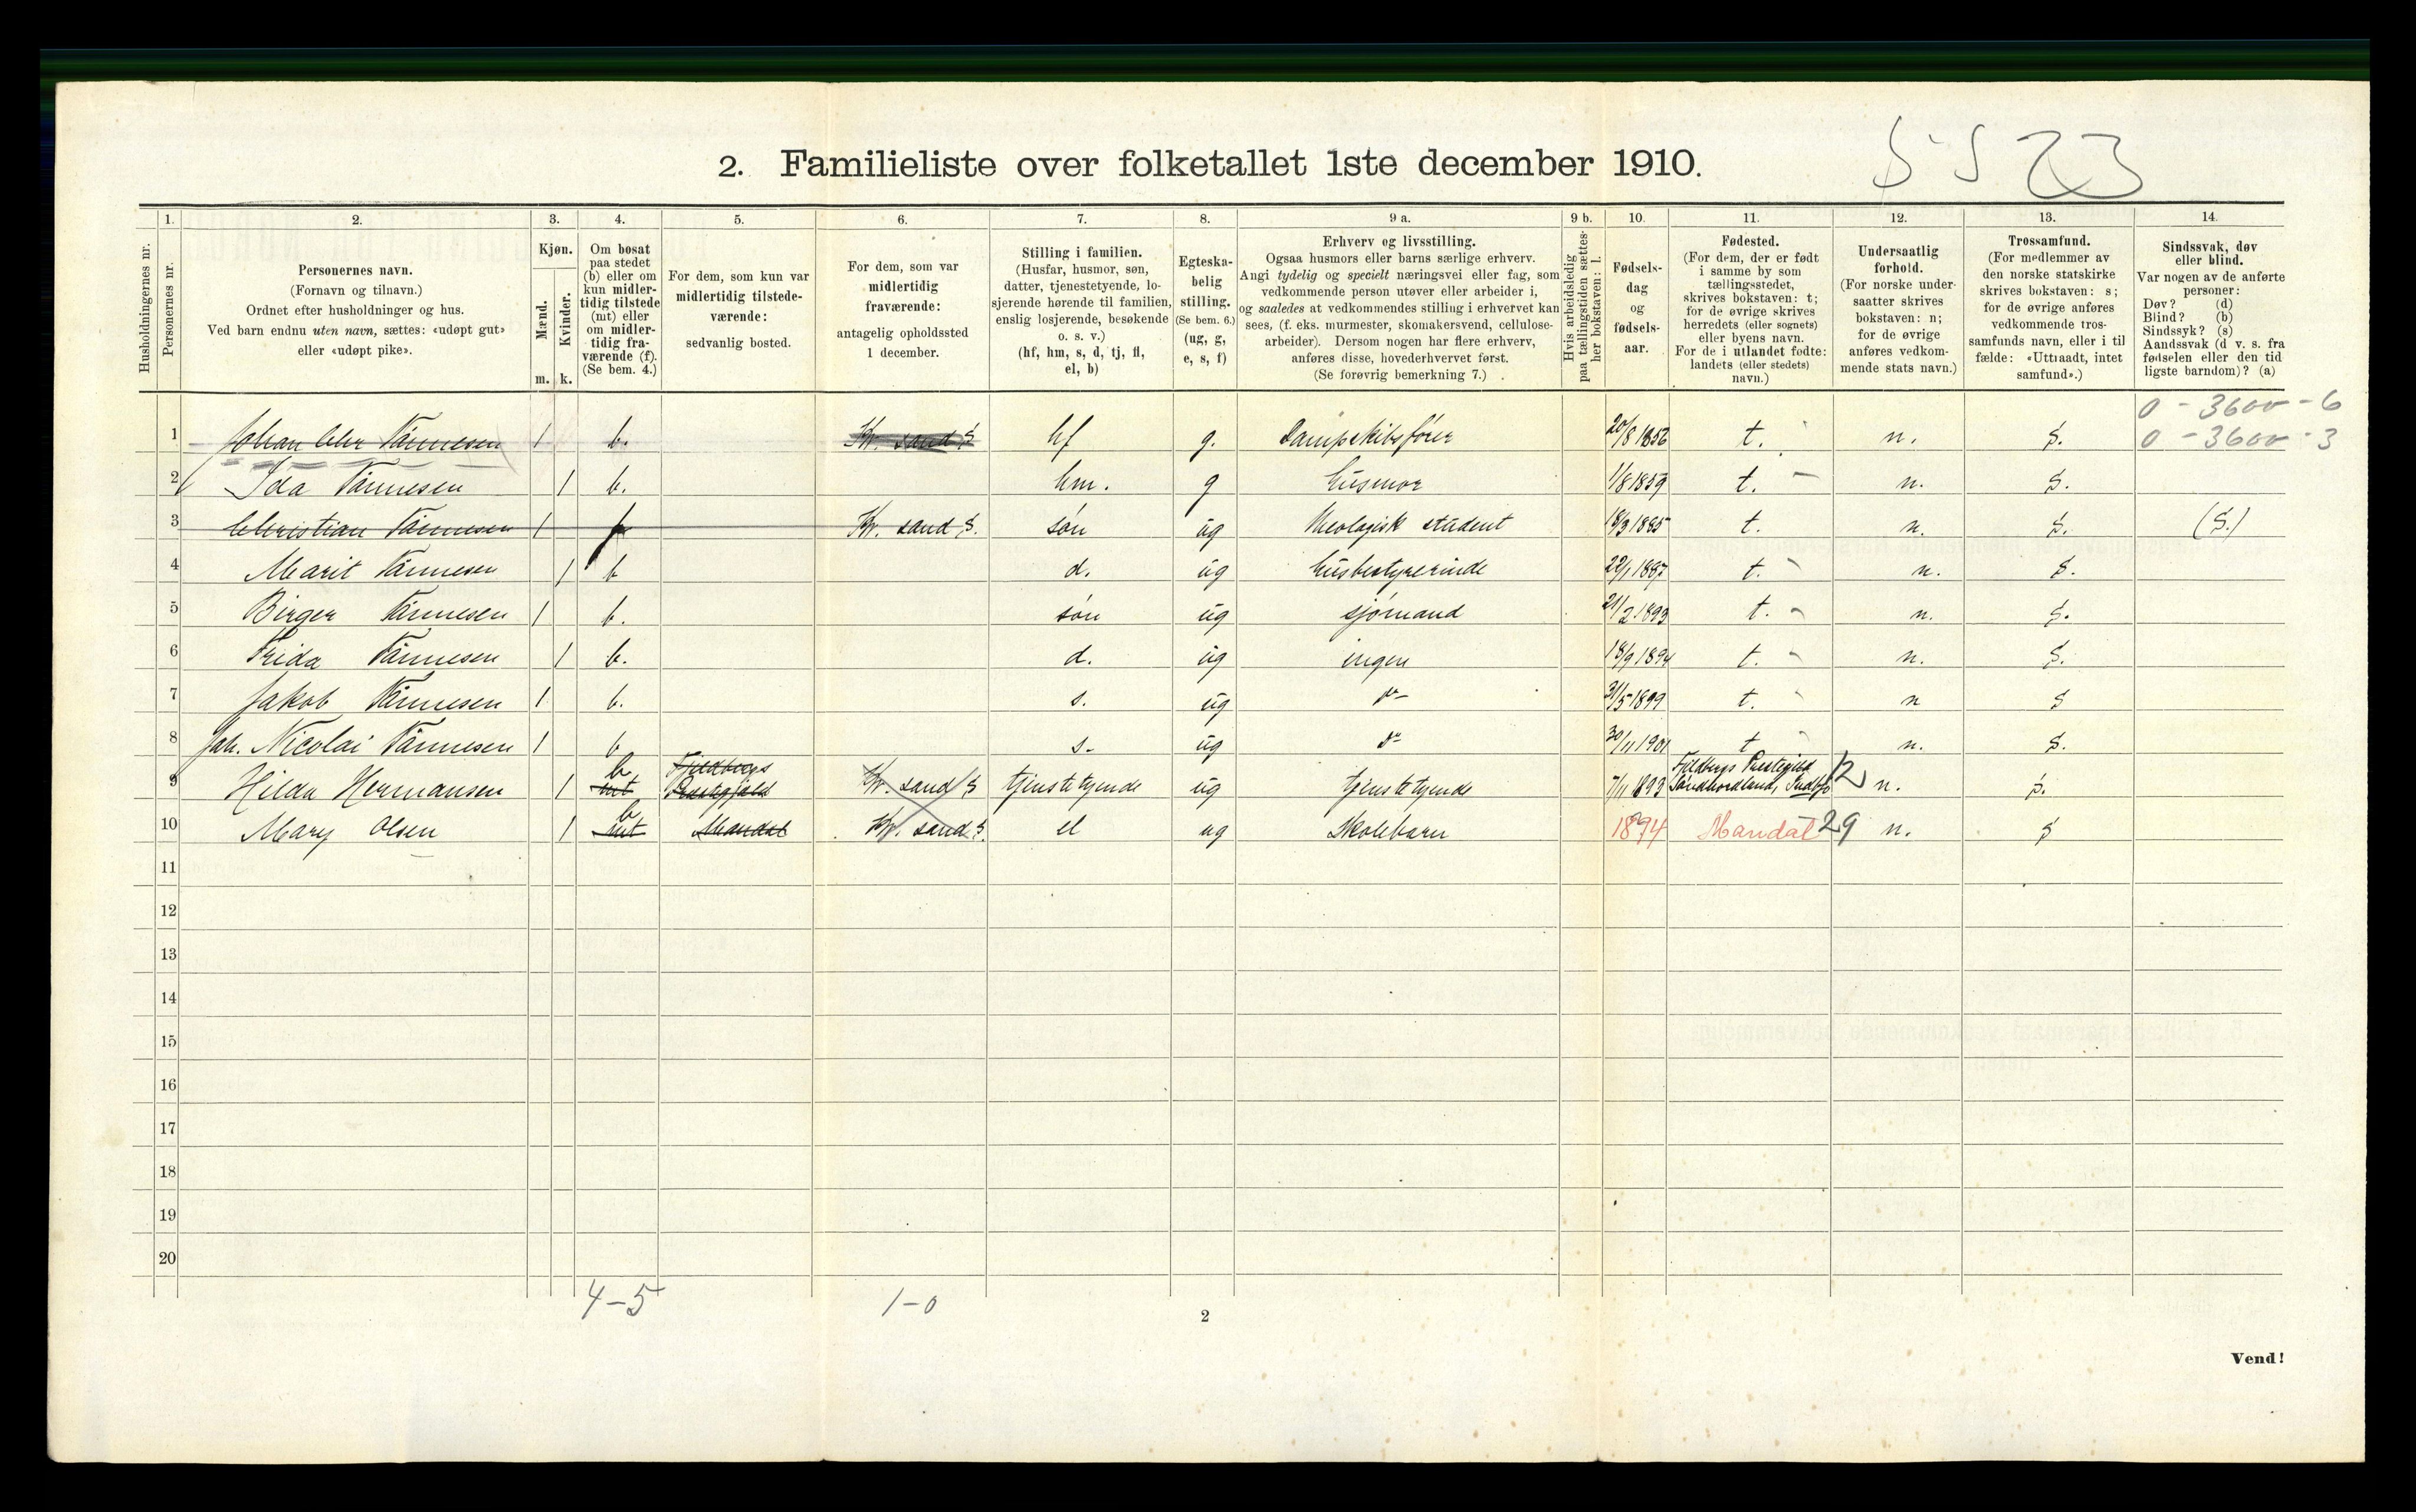 2. Familieliste over folketallet 1ste december 1910.
5523
Husholdningernes nr.
1. Personernes nr.
2. Personernes navn. (Fornavn og tilnavn.) Ordnet efter husholdninger og hus. Ved barn endnu uten navn, sættes: «udøpt gut» eller «udøpt pike».
3. Kjøn. Mænd. m. Kvinder. k.
4. Om bosat paa stedet (b) eller om kun midlertidig tilstede (mt) eller om midlertidig fraværende (f). (Se bem. 4.)
5. For dem, som kun var midlertidig tilstedeværende: sedvanlig bosted.
6. For dem, som var midlertidig fraværende: antagelig opholdssted 1 december.
7. Stilling i familien. (Husfar, husmor, søn, datter, tjenestetyende, losjerende hørende til familien, enslig losjerende, besøkende o. s. v.) (hf, hm, s, d, tj, fl, el, b)
8. Egteskabelig stilling. (Se bem. 6.) (ug, g, e, s, f)
9 a. Erhverv og livsstilling. Ogsaa husmors eller barns særlige erhverv. Angi tydelig og specielt næringsvei eller fag, som vedkommende person utøver eller arbeider i, og saaledes at vedkommendes stilling i erhvervet kan sees, (f. eks. murmester, skomakersvend, cellulosearbeider). Dersom nogen har flere erhverv, anføres disse, hovederhvervet først. (Se forøvrig bemerkning 7.)
9 b. Hvis arbeidsledig paa tællingstiden sættes her bokstaven: l.
10. Fødselsdag og fødselsaar.
11. Fødested. (For dem, der er født i samme by som tællingsstedet, skrives bokstaven: t; for de øvrige skrives herredets (eller sognets) eller byens navn. For de i utlandet fødte: landets (eller stedets) navn.)
12. Undersaatlig forhold. (For norske undersaatter skrives bokstaven: n; for de øvrige anføres vedkommende stats navn.)
13. Trossamfund. (For medlemmer av den norske statskirke skrives bokstaven: s; for de øvrige anføres vedkommende trossamfunds navn, eller i tilfælde: «Uttraadt, intet samfund».)
14. Sindssvak, døv eller blind. Var nogen av de anførte personer: Døv? (d) Blind? (b) Sindssyk? (s) Aandssvak (d v. s. fra fødselen eller den tidligste barndom)? (a)
0 - 3600 - 6
1 Johan Chr Tånnesen 1 b. Kr. sand S hf g. Dampskibsfører 20/8 1852 t. n. S. 0 - 3600 - 3
2 Ida Tånnesen 1 b. hm. g Husmor 1/8 1859 t. n. S.
3 Christian Tånnesen 1 Kr. sand S. søn ug theologisk student 18/3 1885 t. n. S. (S.)
4 Marit Tånnesen 1 b d. ug husbestyrerinde 22/1 1887 t. n. S.
5 Birger Tånnesen 1 b. søn ug sjømand 21/2 1893 t. n. S.
6 Frida Tånnesen 1 b. d. ug ingen 18/9 1894 t. n. S.
7 Jakob Tånnesen 1 b. s. ug do 31/5 1899 t. n S
8 Joh. Nicolai Tånnesen 1 b s. ug do 30/11 1901 t n. S.
9 Hilda Hermansen 1 mt b Fjeldbergs Prestegjæld Kr. sand S tjenstetyende ug tjenstetyende 7/11 1893 Fjeldbergs Prestegjeld Søndhordland, 12 n. S.
10 Mary Olsen 1 mt b Mandal Kr. sand S. el ug Skolebarn 1894 Mandal 29 n. S
11
12
13
14
15
16
17
18
19
20
4-5 1-0
2
Vend!